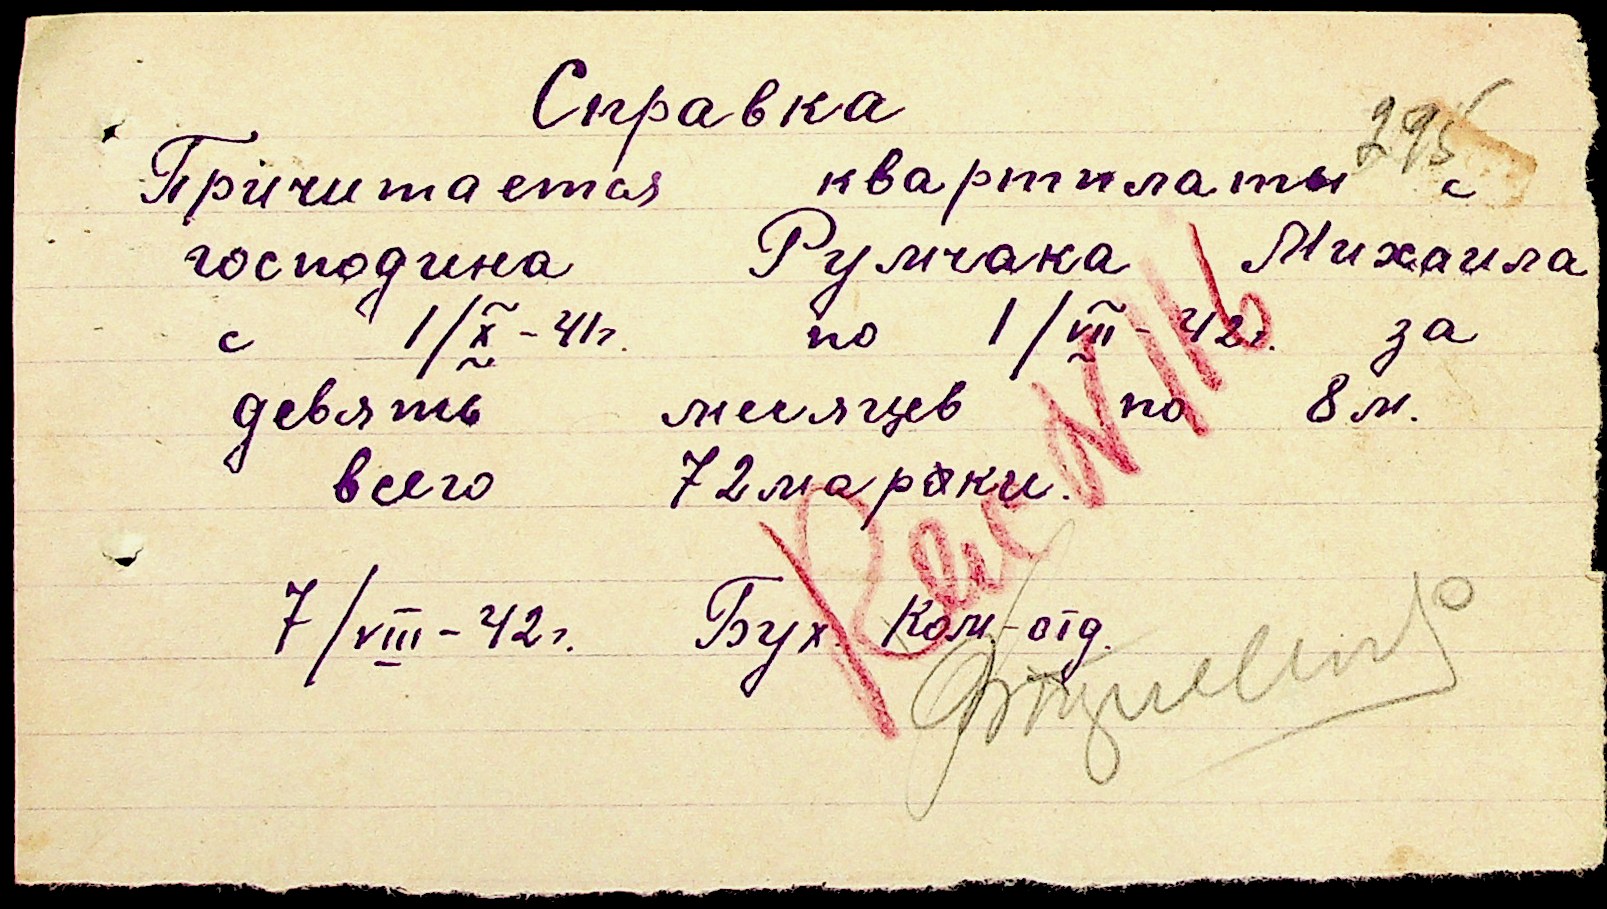 Справка
295
Причитается квартплаты с
господина Румчака Михаила
с 1/X-41г. по 1/VII-42г. за
девять месяцев по 8 м.
всего 72 марки.
7/VIII-42г. Бух. Ком-отд.